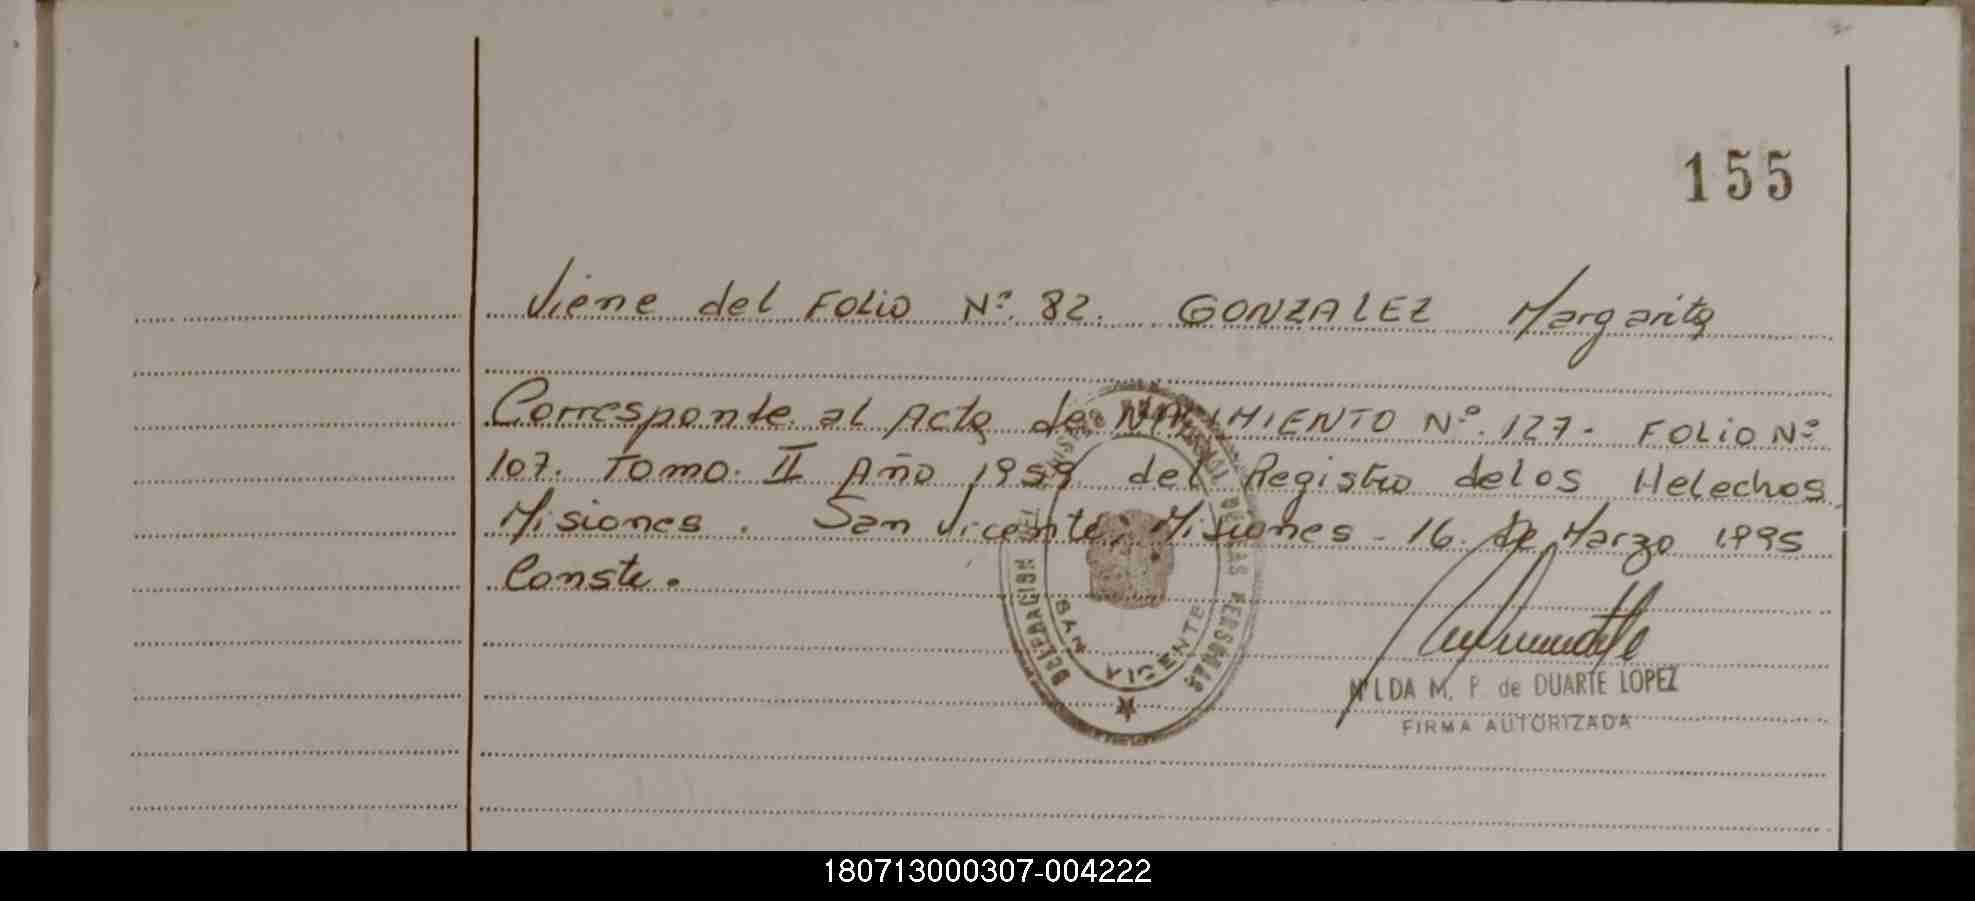 155
Viene del Folio Nº. 82. GONZALEZ Margarita
Corresponde al Acta de NACIMIENTO Nº. 127. FOLIO Nº
107. Tomo. II Año 1959 del Registro de los Helechos
Misiones. San Vicente, Misiones - 16 de Marzo 1995
Conste.
DELEGACION
DE LAS PERSONAS
SAN VICENTE
NILDA M. P. de DUARTE LOPEZ
FIRMA AUTORIZADA
180713000307-004222